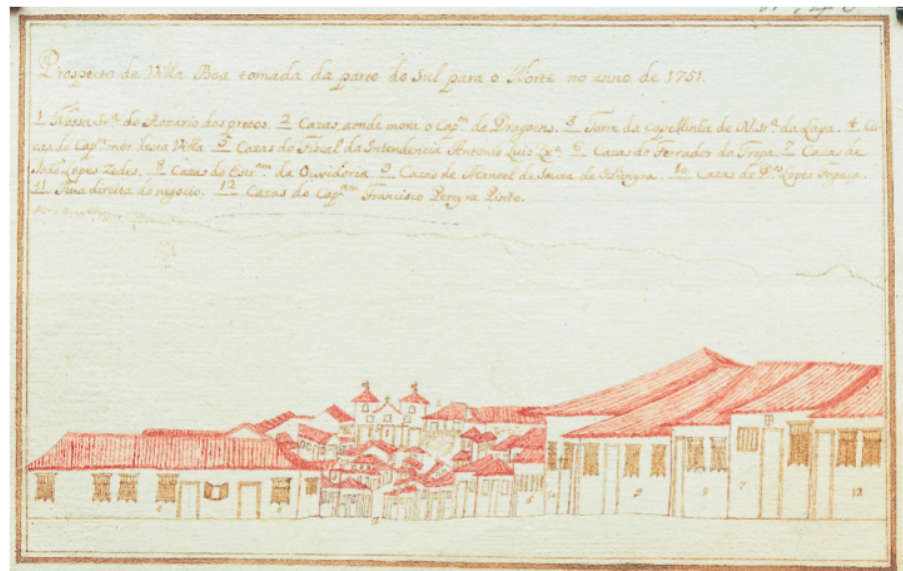 Prospecto de Villa Boa tomada da parte do Sul para o Norte no anno de 1751.
1 Nossa Srª. do Rozario dos pretos. 2 Cazas, aonde mora o Capᵐ. de Dragoens. 3 Torre da Capellinha de N. Srª. da Lapa. 4 Ca-
zas do Capᵐ. mór desta Villa 5 Cazas do Fiscal da Intendencia Antonio Luiz Lxª. 6 Cazas do Ferrador da Tropa. 7 Cazas de
João Lopes Zedes. 8 Cazas do Escʳᵃᵐ da Ouvidoria. 9 Cazas de Manoel de Souza de 10 Cazas de Lopes
11 Rua direita do negocio. 12 Cazas do Capᵃᵐ Francisco Pereyra Pinto.
4 6 10 9 8 7 12